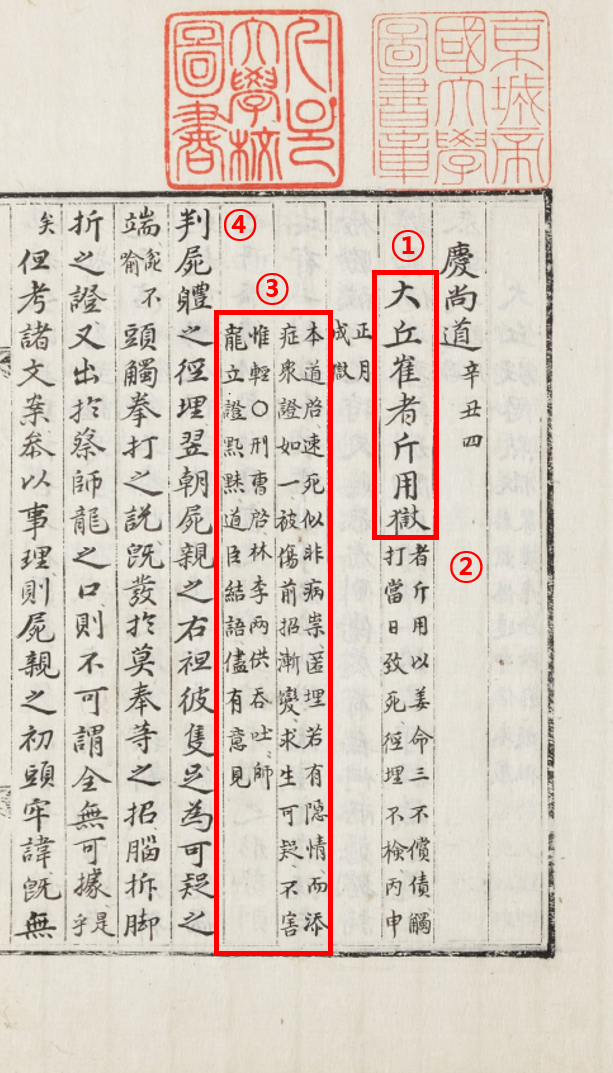 京城帝
國大學
圖書章
大學校
圖書
慶尚道辛丑四
①
大丘崔者斤用獄
②
者斤用以姜命三不償債觸
打當日致死徑埋不檢丙申
正月
成獄
③
本道啓速死似非病祟匿埋若有隱情而添
症衆證如一被傷前招漸變求生可疑不害
惟輕○刑曹啓林李兩供吞吐師
龍立證㸃黙道臣結語儘有意見
④
判屍體之徑埋翌朝屍親之右袒彼隻足為可疑之
端㖙不喻頭觸拳打之說旣發於莫奉等之招腦拆脚
折之證又出於蔡師龍之口則不可謂全無可據是乎
矣但考諸文案叅以事理則屍親之初頭牢諱旣無